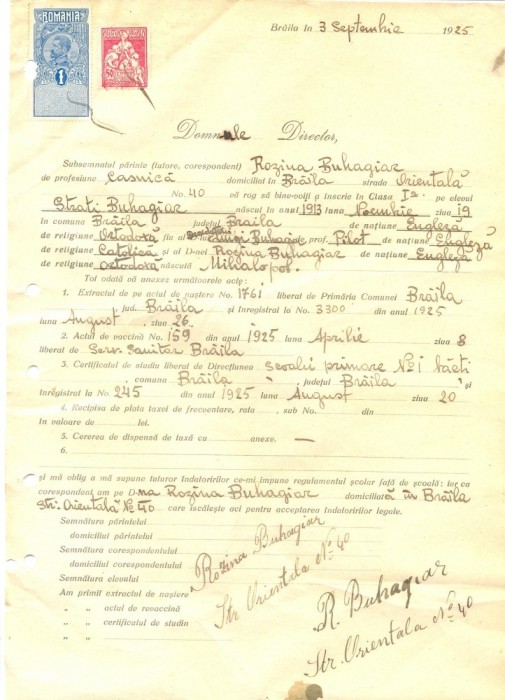 ROMANIA
1
Brăila în 3 Septembrie 1925
Domnule Director,
Subsemnatul părinte (tutore, corespondent) Rozina Buhagiar
de profesiune Casnică domiciliat în Brăila strada Orientală
No. 40 vă rog să bine-voiți a inscrie în Clasa I-a pe elevul
Strati Buhagiar născut în anul 1913 luna Noembrie ziua 19
în comuna Brăila județul Brăila de națiune Engleză
de religiune Ortodoxă fiu al Buhagiar prof. Pilot de națiune Engleză
de religiune Catolică și al D-nei Rozina Buhagiar de națiune Engleză
de religiune Ortodoxă născută Mihalopol.
Tot odată vă anexez următoarele acte:
1. Extractul de pe actul de naștere No. 1761 liberat de Primăria Comunei Brăila
, jud. Brăila și înregistrat la No. 3300 din anul 1925
luna August, ziua 26.
2. Actul de vaccină No. 159 din anul 1925 luna Aprilie ziua 8
liberat de Serv. Sanitar Brăila
3. Certificatul de studiu liberat de Direcțiunea școalei primare No 1 băeți
, comuna Brăila, județul Brăila și
înregistrat la No. 245 din anul 1925 luna August ziua 20
4. Recipisa de plata taxei de frecventare, rata , sub No. din
în valoare de lei.
5. Cererea de dispensă de taxă cu anexe. —
6.
și mă oblig a mă supune tuturor îndatoririlor ce-mi impune regulamentul școlar față de școală: iar ca
corespondent am pe D-na Rozina Buhagiar domiciliată în Brăila
Str. Orientală No 40 care iscălește aci pentru acceptarea îndatoririlor legale.
Semnătura părintelui
domiciliul părintelui
Semnătura corespondentului Rozina Buhagiar
domiciliul corespondentului Str. Orientala No 40
Semnătura elevului
Am primit extractul de naștere R. Buhagiar
„ „ actul de revaccină Str. Orientala No 40
„ „ certificatul de studiu
„ „